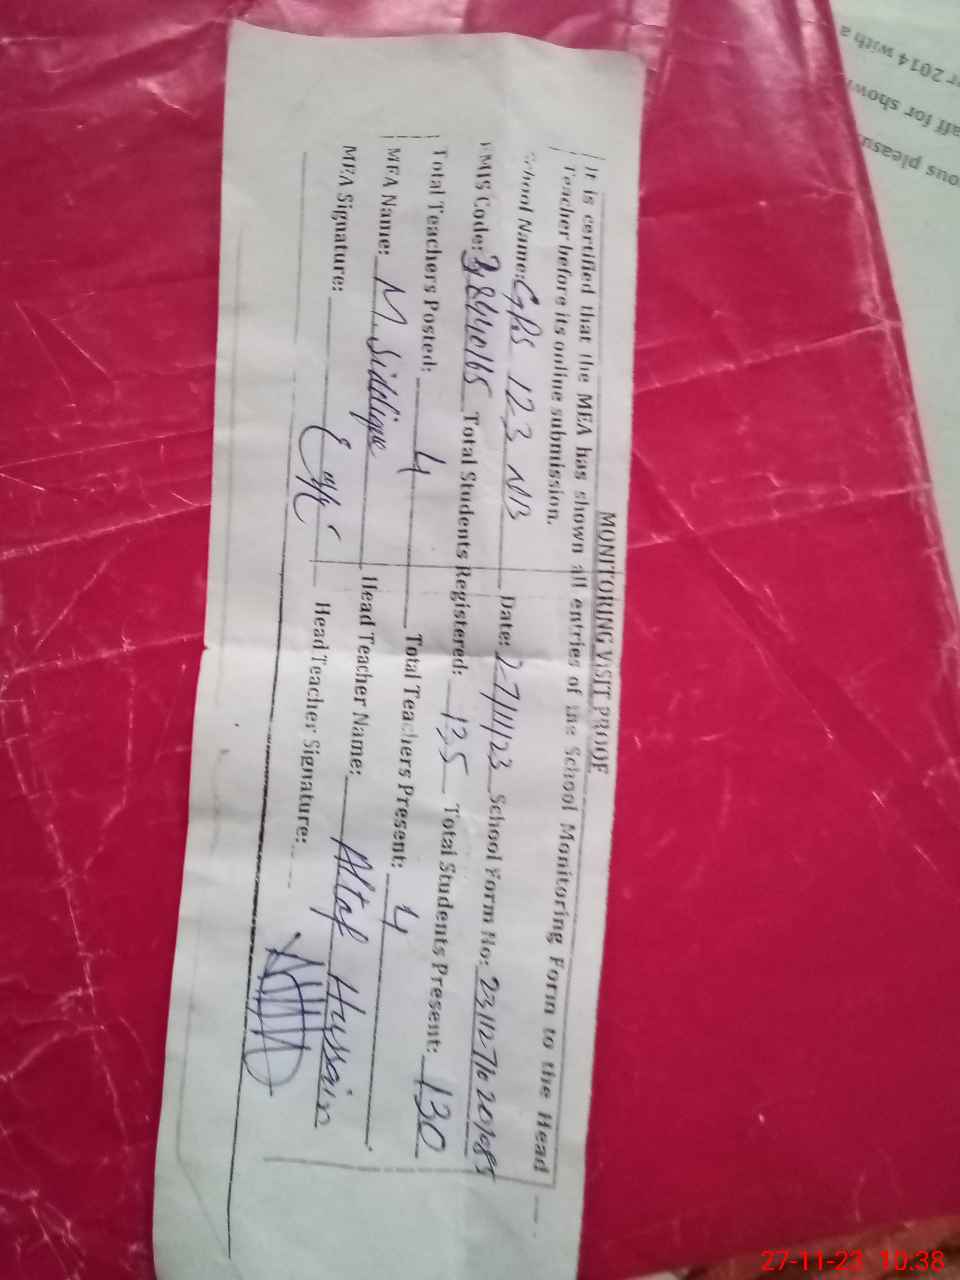 MONITORING VISIT PROOF
It is certified that the MEA has shown all entries of the School Monitoring Form to the Head
Teacher before its online submission.
School Name: GPS 123 NB Date: 27/11/23 School Form No:
EMIS Code: Total Students Registered: 135 Total Students Present: 130
Total Teachers Posted: 4 Total Teachers Present: 4
MEA Name: M. Siddique Head Teacher Name: Altaf Hussain
MEA Signature: Head Teacher Signature:
2014 with a
for
27-11-23 10:38